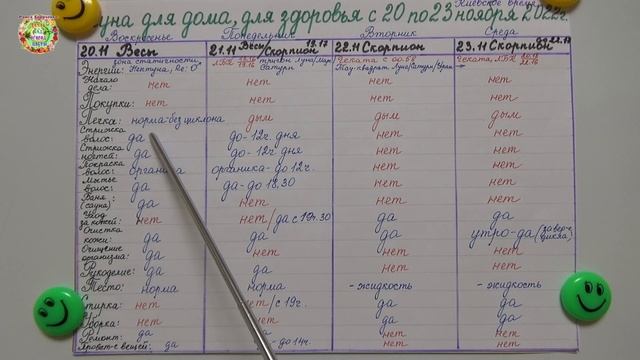 Луна для дома, для здоровья с 20 по 23 ноября 2022г.
Киевское время
Воскресенье Понедельник Вторник Среда
20.11 Весы 21.11 Весы/Скорпион 19.17 22.11 Скорпион 23.11 Скорпион
Энергии: зона статичности Нептуна, ЛБК тригон Луна/Марс Сатурн Геката с 00.58 Тау-квадрат Луна/Сатурн/Уран Геката, ЛБК
Начало дела: нет нет нет нет
Покупки: нет нет нет нет
Печка: норма-без циклона дым дым дым
Стрижка волос: да до-12ч. дня нет нет
Стрижка ногтей: да до-12ч дня нет нет
Покраска волос: органика органика-до 12ч. нет нет
Мытье волос: да да-до 18.30 нет нет
Баня (сауна) да нет нет нет
Уход за кожей: нет нет/да с 19ч.30 да да
Очистка кожи: да да да утро-да (заверш. цикла)
Очищение организма: да нет нет нет
Рукоделие: да да нет нет
Тесто: норма норма -жидкость -жидкость
Стирка: нет нет/с 19ч. да да
Уборка: нет нет да да
Ремонт: да нет нет
Провет-е вещей: да -до 14ч. нет нет